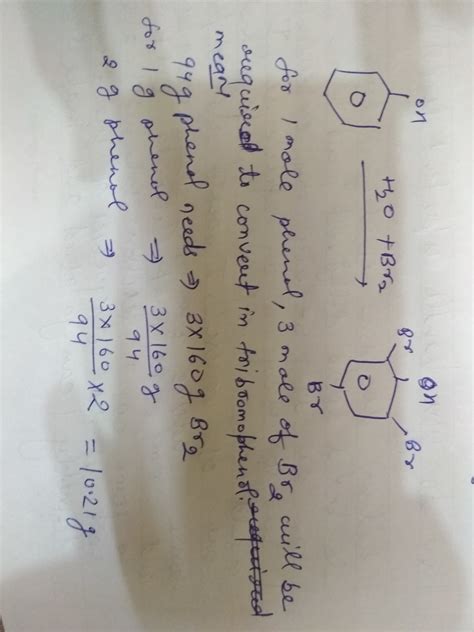 OH
H2O + Br2
OH
Br
Br
Br
for 1 mole phenol, 3 mole of Br2 will be
required to convert in tribromophenol. required
mean,
94g phenol needs ⇒ 3×160g Br2
for 1 g phenol ⇒ 3×160/94 g
2 g phenol ⇒ 3×160/94 × 2 = 10.21g